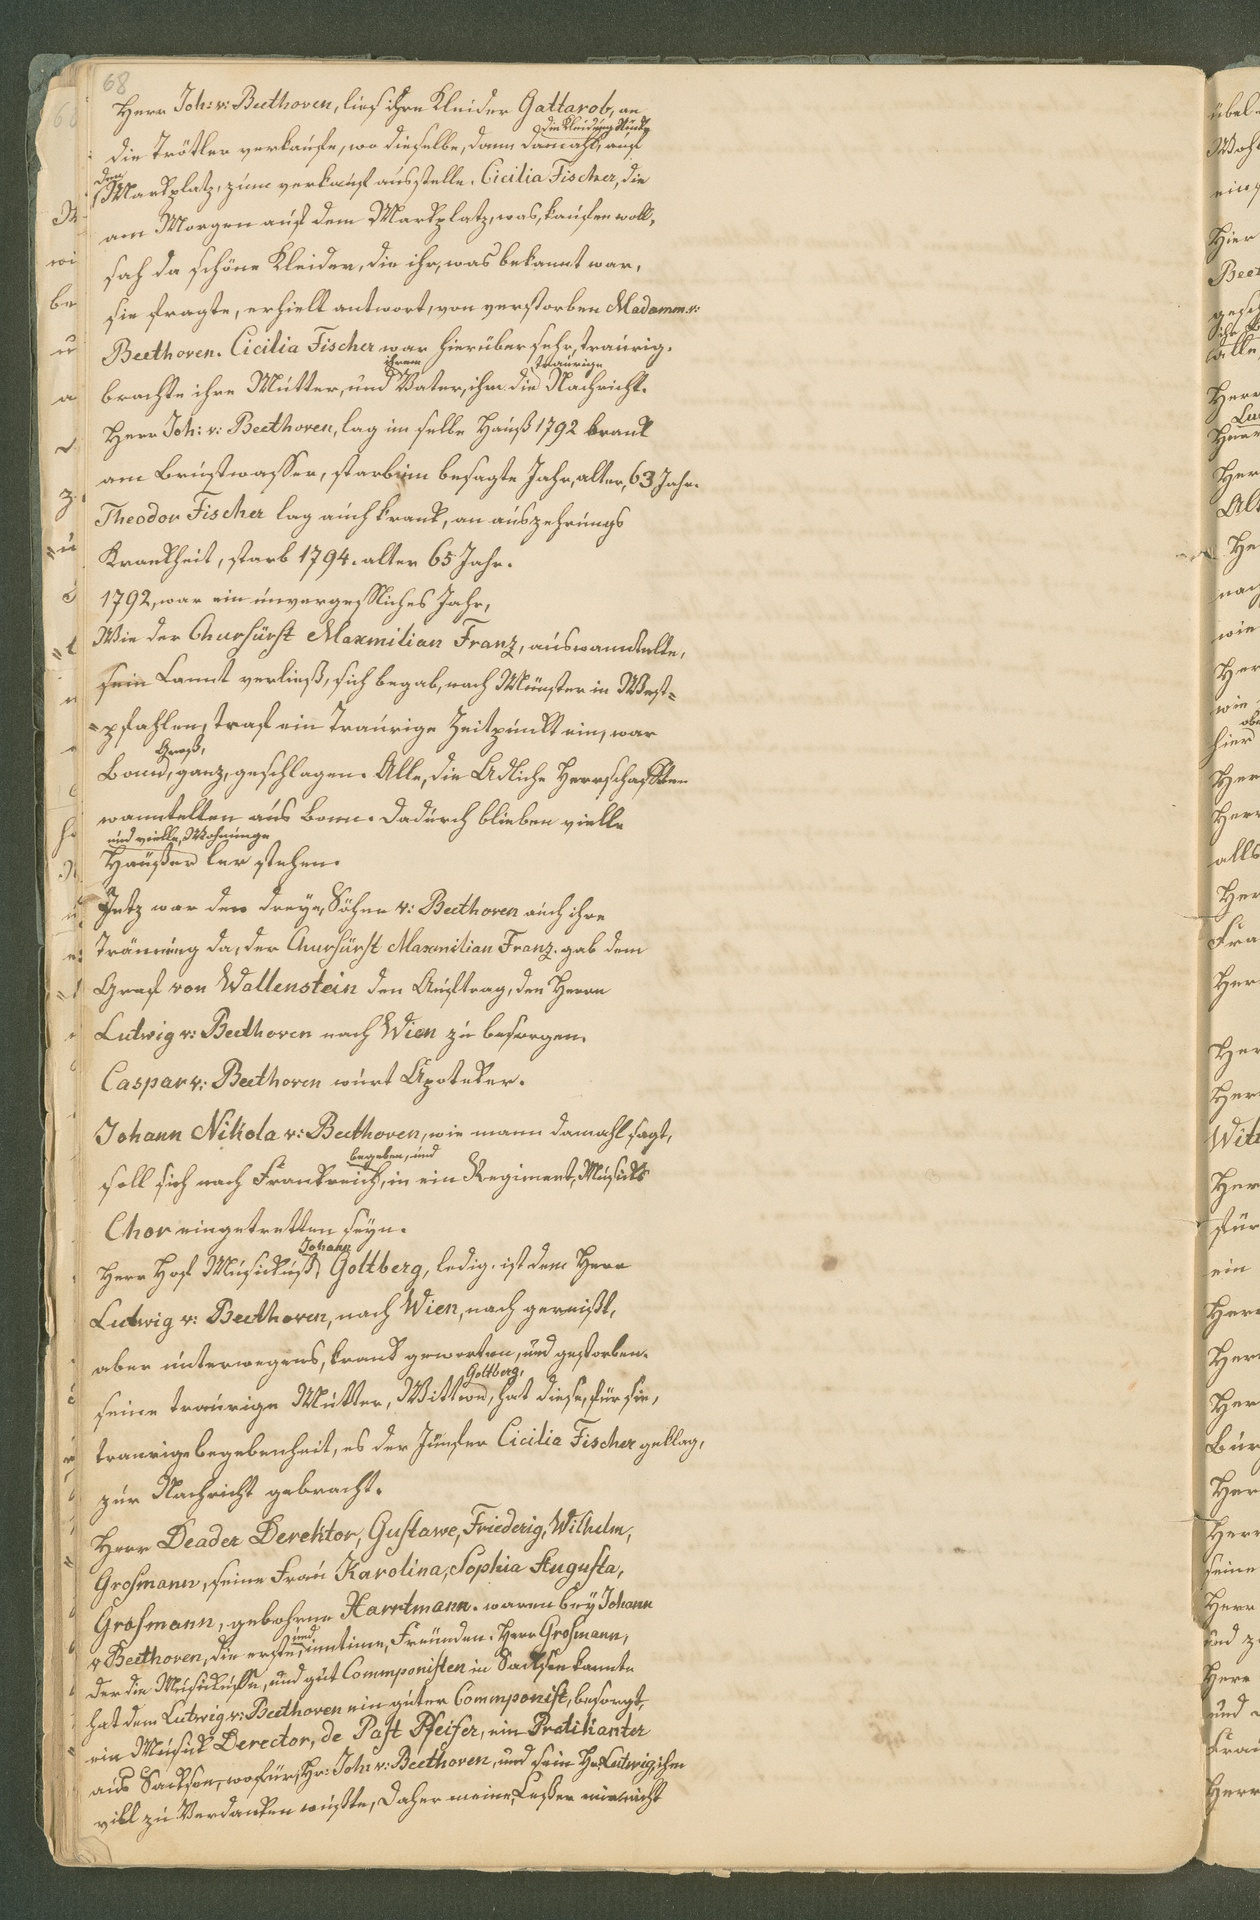 68
Herr Joh: v: Beethoven, lies ihre Kleider Gattarob, an
die Kleidung Stücke
die Trötler verkaufe, wo dieselbe, dann damahl, auf
den
Markplatz, zum verkauf ausstelle. Cicilia Fischer, die
am Morgen auf dem Markplatz, was, kaufen woll,
sah da schöne Kleider, die ihr, was bekannt war,
sie fragte, erhielt antwort, von verstorben Madamm v:
Beethoven. Cicilia Fischer war hierüber sehr, traurig.
ihrem traurige
brachte ihre Mutter, und Vater, ihm die Nachricht.
Herr Joh: v: Beethoven, lag im selbe Hauß 1792 krank
am Brustwasser, starb im besagte Jahr, alter, 63 Jahr.
Theodor Fischer lag auch krank, an auszehrungs
Krankheit, starb 1794. alter 65 Jahr.
1792, war ein unvergeßliches Jahr,
Wie der Churfürst Maxmilian Franz, auswanntelte,
sein Lannt verließ, sich begab, nach Münster in West=
=pfahlen, traf ein Traurige Zeitpunkt ein, war
Groß,
Bonn, ganz, geschlagen. Alle, die Adliche Herrschafften
wanntelten aus Bonn. Dadurch blieben vielle
und vielle, Wohnunge
Haüßer ler stehen.
Jetz war den dreye, Söhne v: Beethoven auch ihre
Trännung da, der Churfürst Maxmilian Franz. gab dem
Graf von Wallenstein den Auftrag, den Herrn
Lutwig v: Beethoven nach Wien zu besorgen.
Caspar v: Beethoven wurt Apoteker.
Johann Nikola v: Beethoven, wie mann damahl sagt,
begeben, und
soll sich nach Frankreich, in ein Regiment, Musicks
Chor eingetretten seyn.
Johann
Herr Hof Musickuß, Goltberg, ledig. ist dem Herr
Lutwig v: Beethoven, nach Wien, nach gereißt,
aber unterwegens, krank geworten, und gestorben.
Goltberg,
seine traurige Mutter, Wittwe, hat diese, für sie,
traurige begebenheit, es der Junfer Cicilia Fischer geklag,
zur Nachricht gebracht.
Herr Deader Derektor, Gustawe, Friederig, Wilhelm,
Grosmann, seine Frau Karolina, Sophia Augusta,
Grosmann, gebohrne Harrtmann. waren bey Johann
und
v Beethoven, die erste, inntime, Freünden. Herr Grosmann,
der die Musickusse, und gut Commponisten in Sacksen kannte
hat dem Lutwig v: Beethoven ein guter Commponist, besorgt,
ein Musick Derector, de Past Pfeifer, ein Pratikanter
aus Sacksen, wofür, Hr: Joh: v: Beethoven, und sein Hr: Lutwig, ihm
viell zu Verdanken wußte, Daher meine, Leßer mir nicht